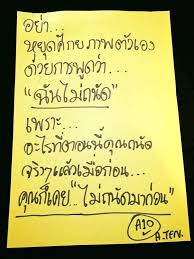 อย่า...
หยุดศักยภาพตัวเอง
ด้วยการพูดว่า...
"ฉันไม่ถนัด"
เพราะ...
อะไรที่ตอนนี้คุณถนัด
จริงๆแล้วเมื่อก่อน...
คุณก็เคย "ไม่ถนัดมาก่อน"
A10
A.TEN.